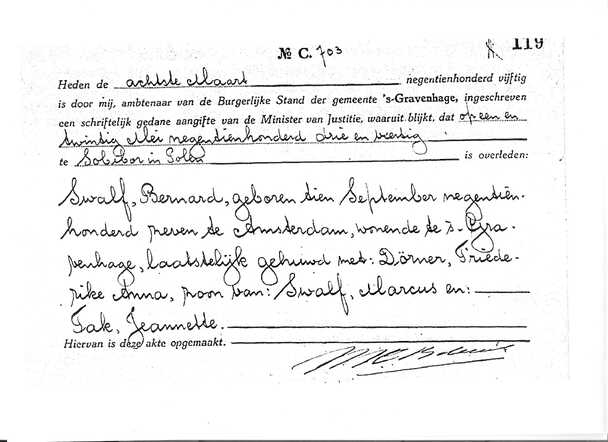 № C. 703
119
Heden de achtste Maart negentienhonderd vijftig
is door mij, ambtenaar van de Burgerlijke Stand der gemeente 's-Gravenhage, ingeschreven
een schriftelijk gedane aangifte van de Minister van Justitie, waaruit blijkt, dat op een en
twintig Mei negentienhonderd drie en veertig
te Sobibor in Polen is overleden:
Swalf, Bernard, geboren tien September negentien-
honderd zeven te Amsterdam, wonende te 's-Gra-
venhage, laatstelijk gehuwd met: Dörner, Friede-
rike Anna, zoon van: Swalf, Marcus en:
Tak, Jeannette.
Hiervan is deze akte opgemaakt.